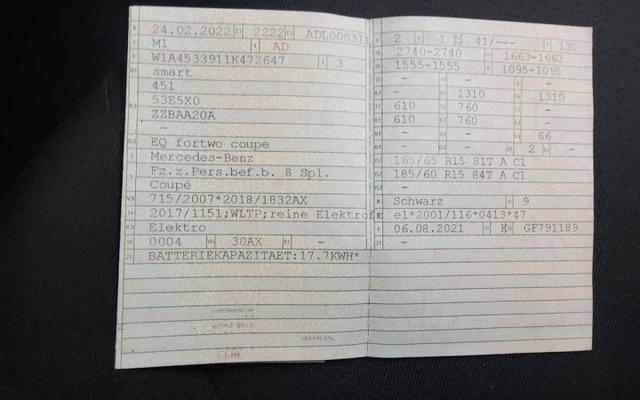 24.02.2022 2222 ADL000311
M1 AD
W1A4533911K472647 3
smart
451
53E5X0
ZZBAA20A
-
EQ fortwo coupe
Mercedes-Benz
Fz.z.Pers.bef.b. 8 Spl.
Coupé
715/2007*2018/1832AX
2017/1151;WLTP;reine Elektrof
Elektro
0004 30AX -
BATTERIEKAPAZITAET:17.7KWH*
2 1 41/--- 130
2740-2740 1663-1663
1555-1555 1095-1095
- -
- 1310 1310
610 760 -
610 760 -
- - 66
- - 2 -
165/65 R15 81T A C1
185/60 R15 84T A C1
-
Schwarz 9
e1*2001/116*0413*47
06.08.2021 K GF791189
- -